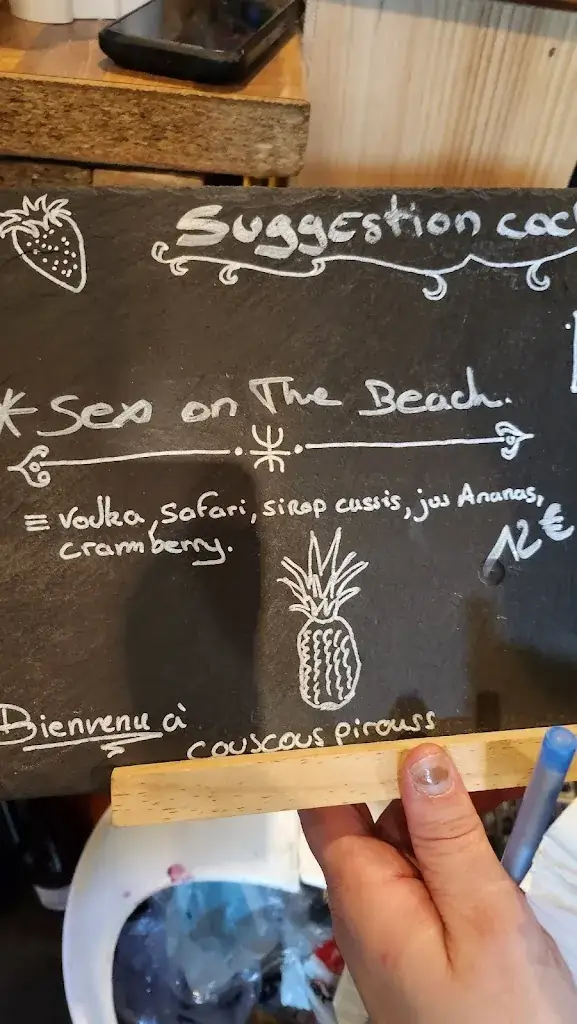 Suggestion coc
* Sex on The Beach.
= Vodka, safari, sirop cassis, jus Ananas,
crammberry.
12€
Bienvenu à
couscous pirouss